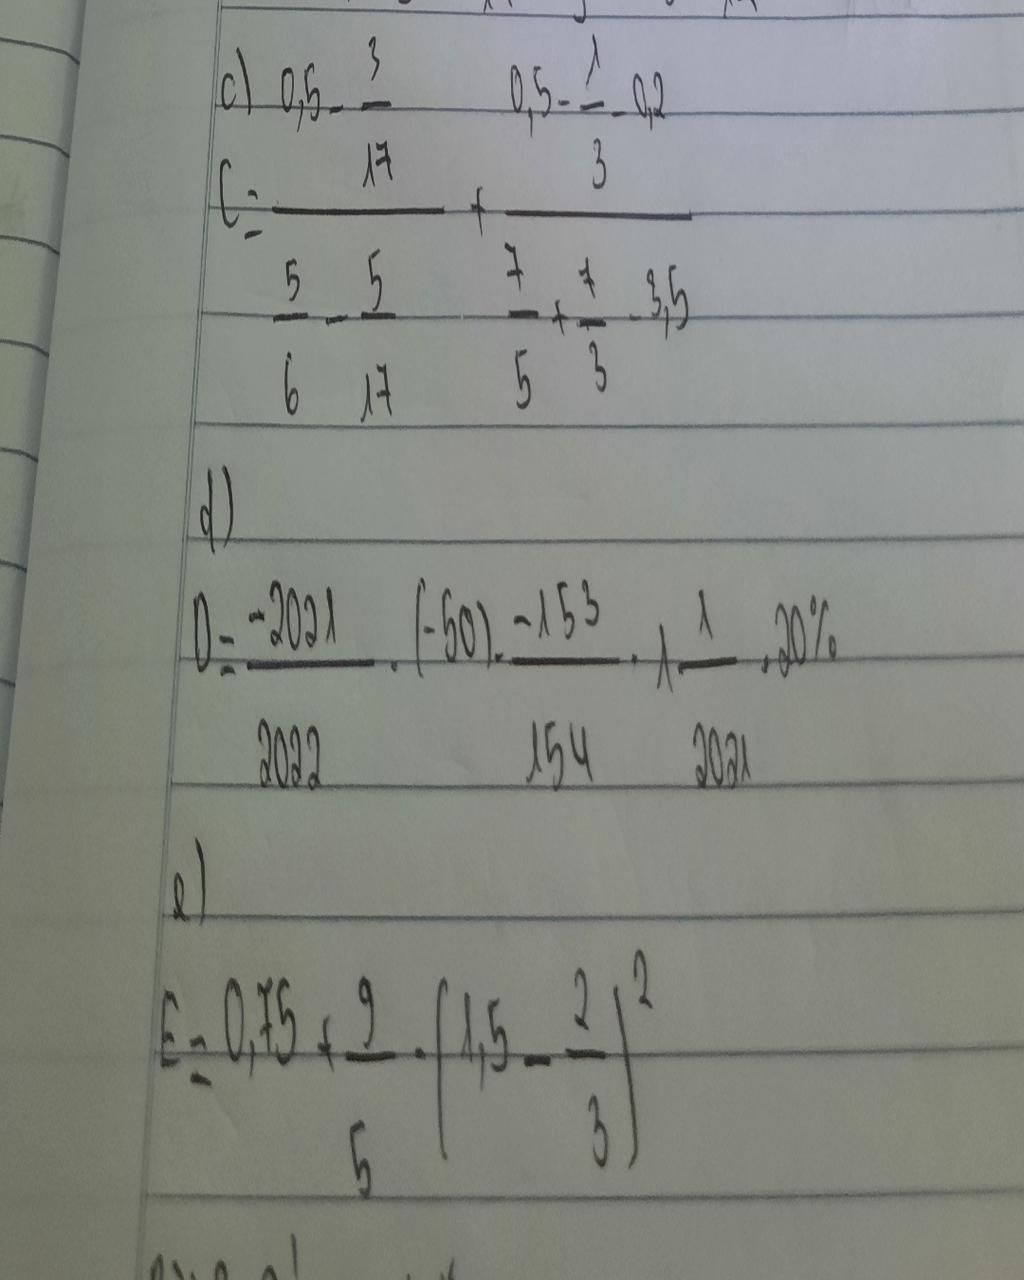 c) 0,5 - 3/17 0,5 - 1/3 - 0,2
C = ――― + ―――
5/6 - 5/17 7/5 + 7/3 - 3,5
d)
D = -2021/2022 . (-50) . -153/154 . 1 1/2021 . 20%
e)
E = 0,75 + 9/5 . (1,5 - 2/3)²